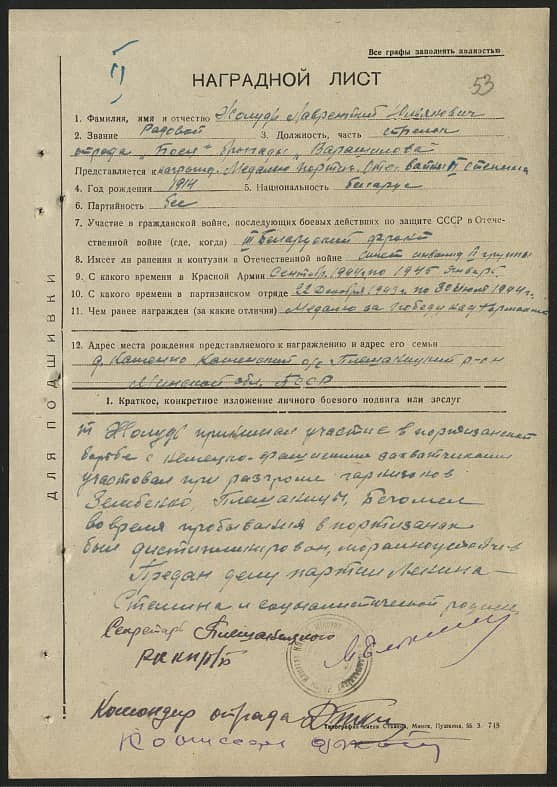 Все графы заполнять полностью
II
53
НАГРАДНОЙ ЛИСТ
1. Фамилия, имя и отчество Жолудь Лаврентий
2. Звание Рядовой 3. Должность, часть стрелок
отряда бригады
Представляется к Медалью Партиз. Отс. войны II степени
4. Год рождения 1914 5. Национальность беларус
6. Партийность б/п
7. Участие в гражданской войне, последующих боевых действиях по защите СССР в Отече-
ственной войне (где, когда) III Беларуский фронт
8. Имеет ли ранения и контузии в Отечественной войне инвалид II группы
9. С какого времени в Красной Армии Сентябр. 1944 по 1945 январь
10. С какого времени в партизанском отряде 22 Декабря 1943 г. по 30 июля 1944 г.
11. Чем ранее награжден (за какие отличия) Медалью за Победу над Германией
12. Адрес места рождения представляемого к награждению и адрес его семьи
д. с/с Плещаницкий р-он
Минской обл. БССР
ДЛЯ ПОДШИВКИ
I. Краткое, конкретное изложение личного боевого подвига или заслуг
т Жолудь принимал участие в партизанской
борьбе с немецко-фашискими захватчиками
участвовал при разгроме гарнизонов
Зембенко, Плещаницы, Бегомел
во время пребывания в партизанах
был дистиплинирован, морально
Предан делу партии Ленина-
Сталина и социалистической родине
Секретарь Плещаницкого
РК КП(б)Б
Командир отряда
Типография имени Сталина, Минск, Пушкина, 55. З. 743
Комиссар